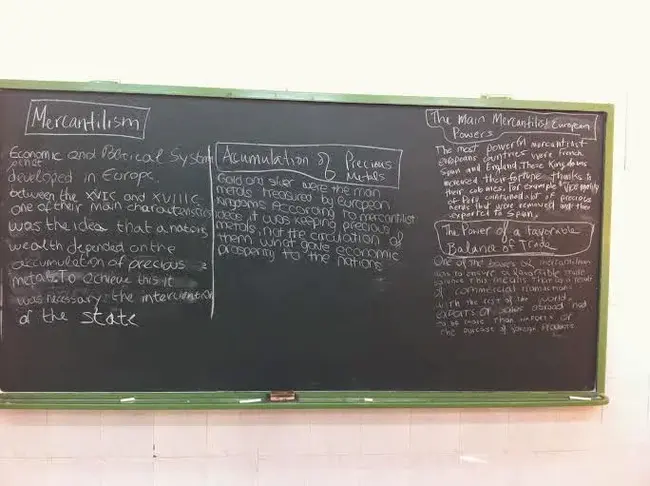 Mercantilism
Economic and Political System
developed in Europe
between the XVIC and XVIIIC
one of their main characteristics
was the idea that a nation's
wealth depended on the
accumulation of precious
metals. To achieve this it
was necessary the intervention
of the state
Acumulation of Precious
Metals
Gold and silver were the main
metals treasured by European
Kingdoms According to mercantilist
ideas, it was keeping precious
metals, not the circulation of
them what gave economic
prosperity to the nations
The Main Mercantilist European
Powers
The most powerful mercantilist
europeans countries were French,
Spain and England. These Kingdoms
increased their fortune thanks to
their colonies. For example
of Perú contained a lot of precious
that were removed and then
exported to Spain.
The Power of a Favorable
Balance of Trade
One of the of mercantilism
was to ensure a favorable trade
balance this means that as a result
of commercial transactions
with the rest of the world,
exports or sales abroad had
to be more than imports or
the purchase of foreign products.